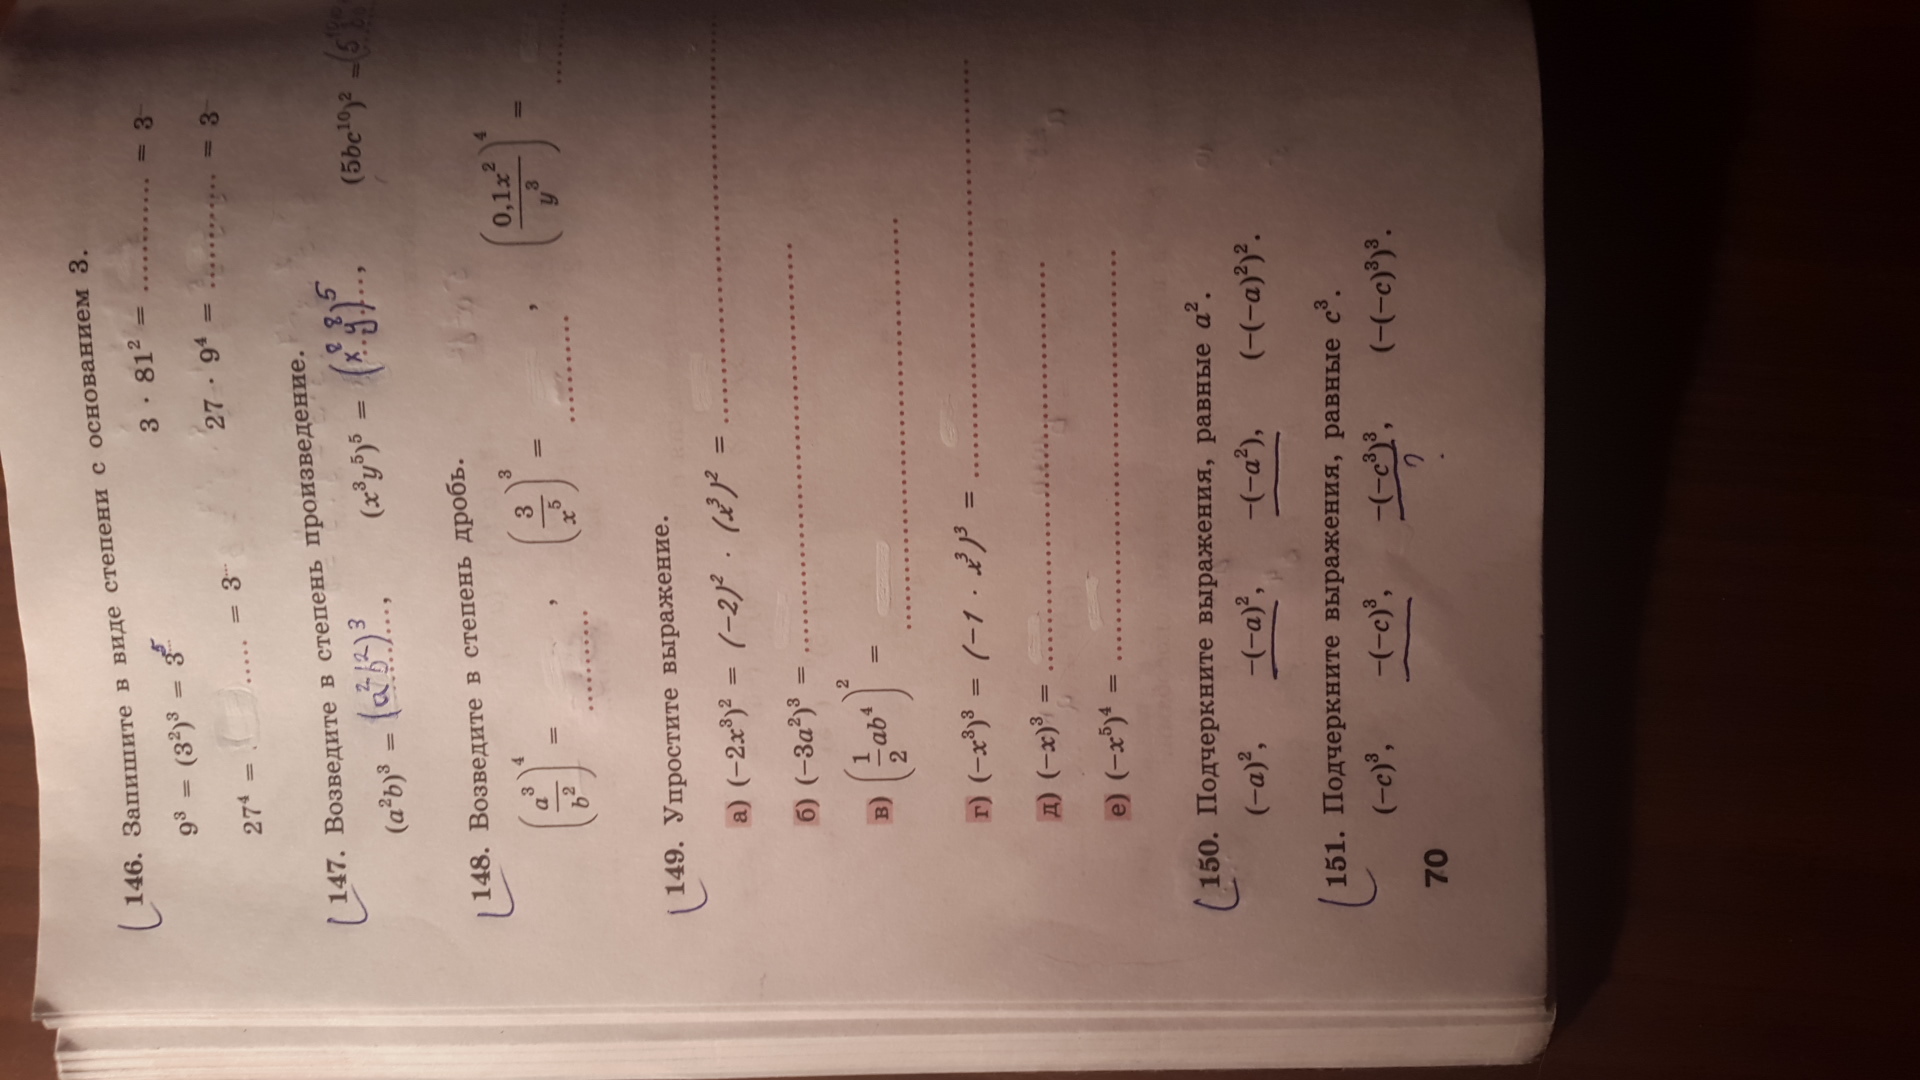 146. Запишите в виде степени с основанием 3.
9³ = (3²)³ = 3⁵ 3 · 81² = ........... = 3
27⁴ = ...... = 3... 27 · 9⁴ = ........... = 3
147. Возведите в степень произведение.
(a²b)³ = (a²b²)³, (x³y⁵)⁵ = (x⁸y⁸)⁵, (5bc¹⁰)² = (5
148. Возведите в степень дробь.
(a³/b²)⁴ = .........., (3/x⁵)³ = .........., (0,1x²/y³)⁴ = ........
149. Упростите выражение.
а) (−2x³)² = (−2)² · (x³)² = ........................
б) (−3a²)³ = ........................
в) (1/2 ab⁴)² = ........................
г) (−x³)³ = (−1 · x³)³ = ........................
д) (−x)³ = ........................
е) (−x⁵)⁴ = ........................
150. Подчеркните выражения, равные a².
(−a)², −(−a)², −(−a²), (−(−a)²)².
151. Подчеркните выражения, равные c³.
(−c)³, −(−c)³, −(−c³)³, (−(−c)³)³.
?
70